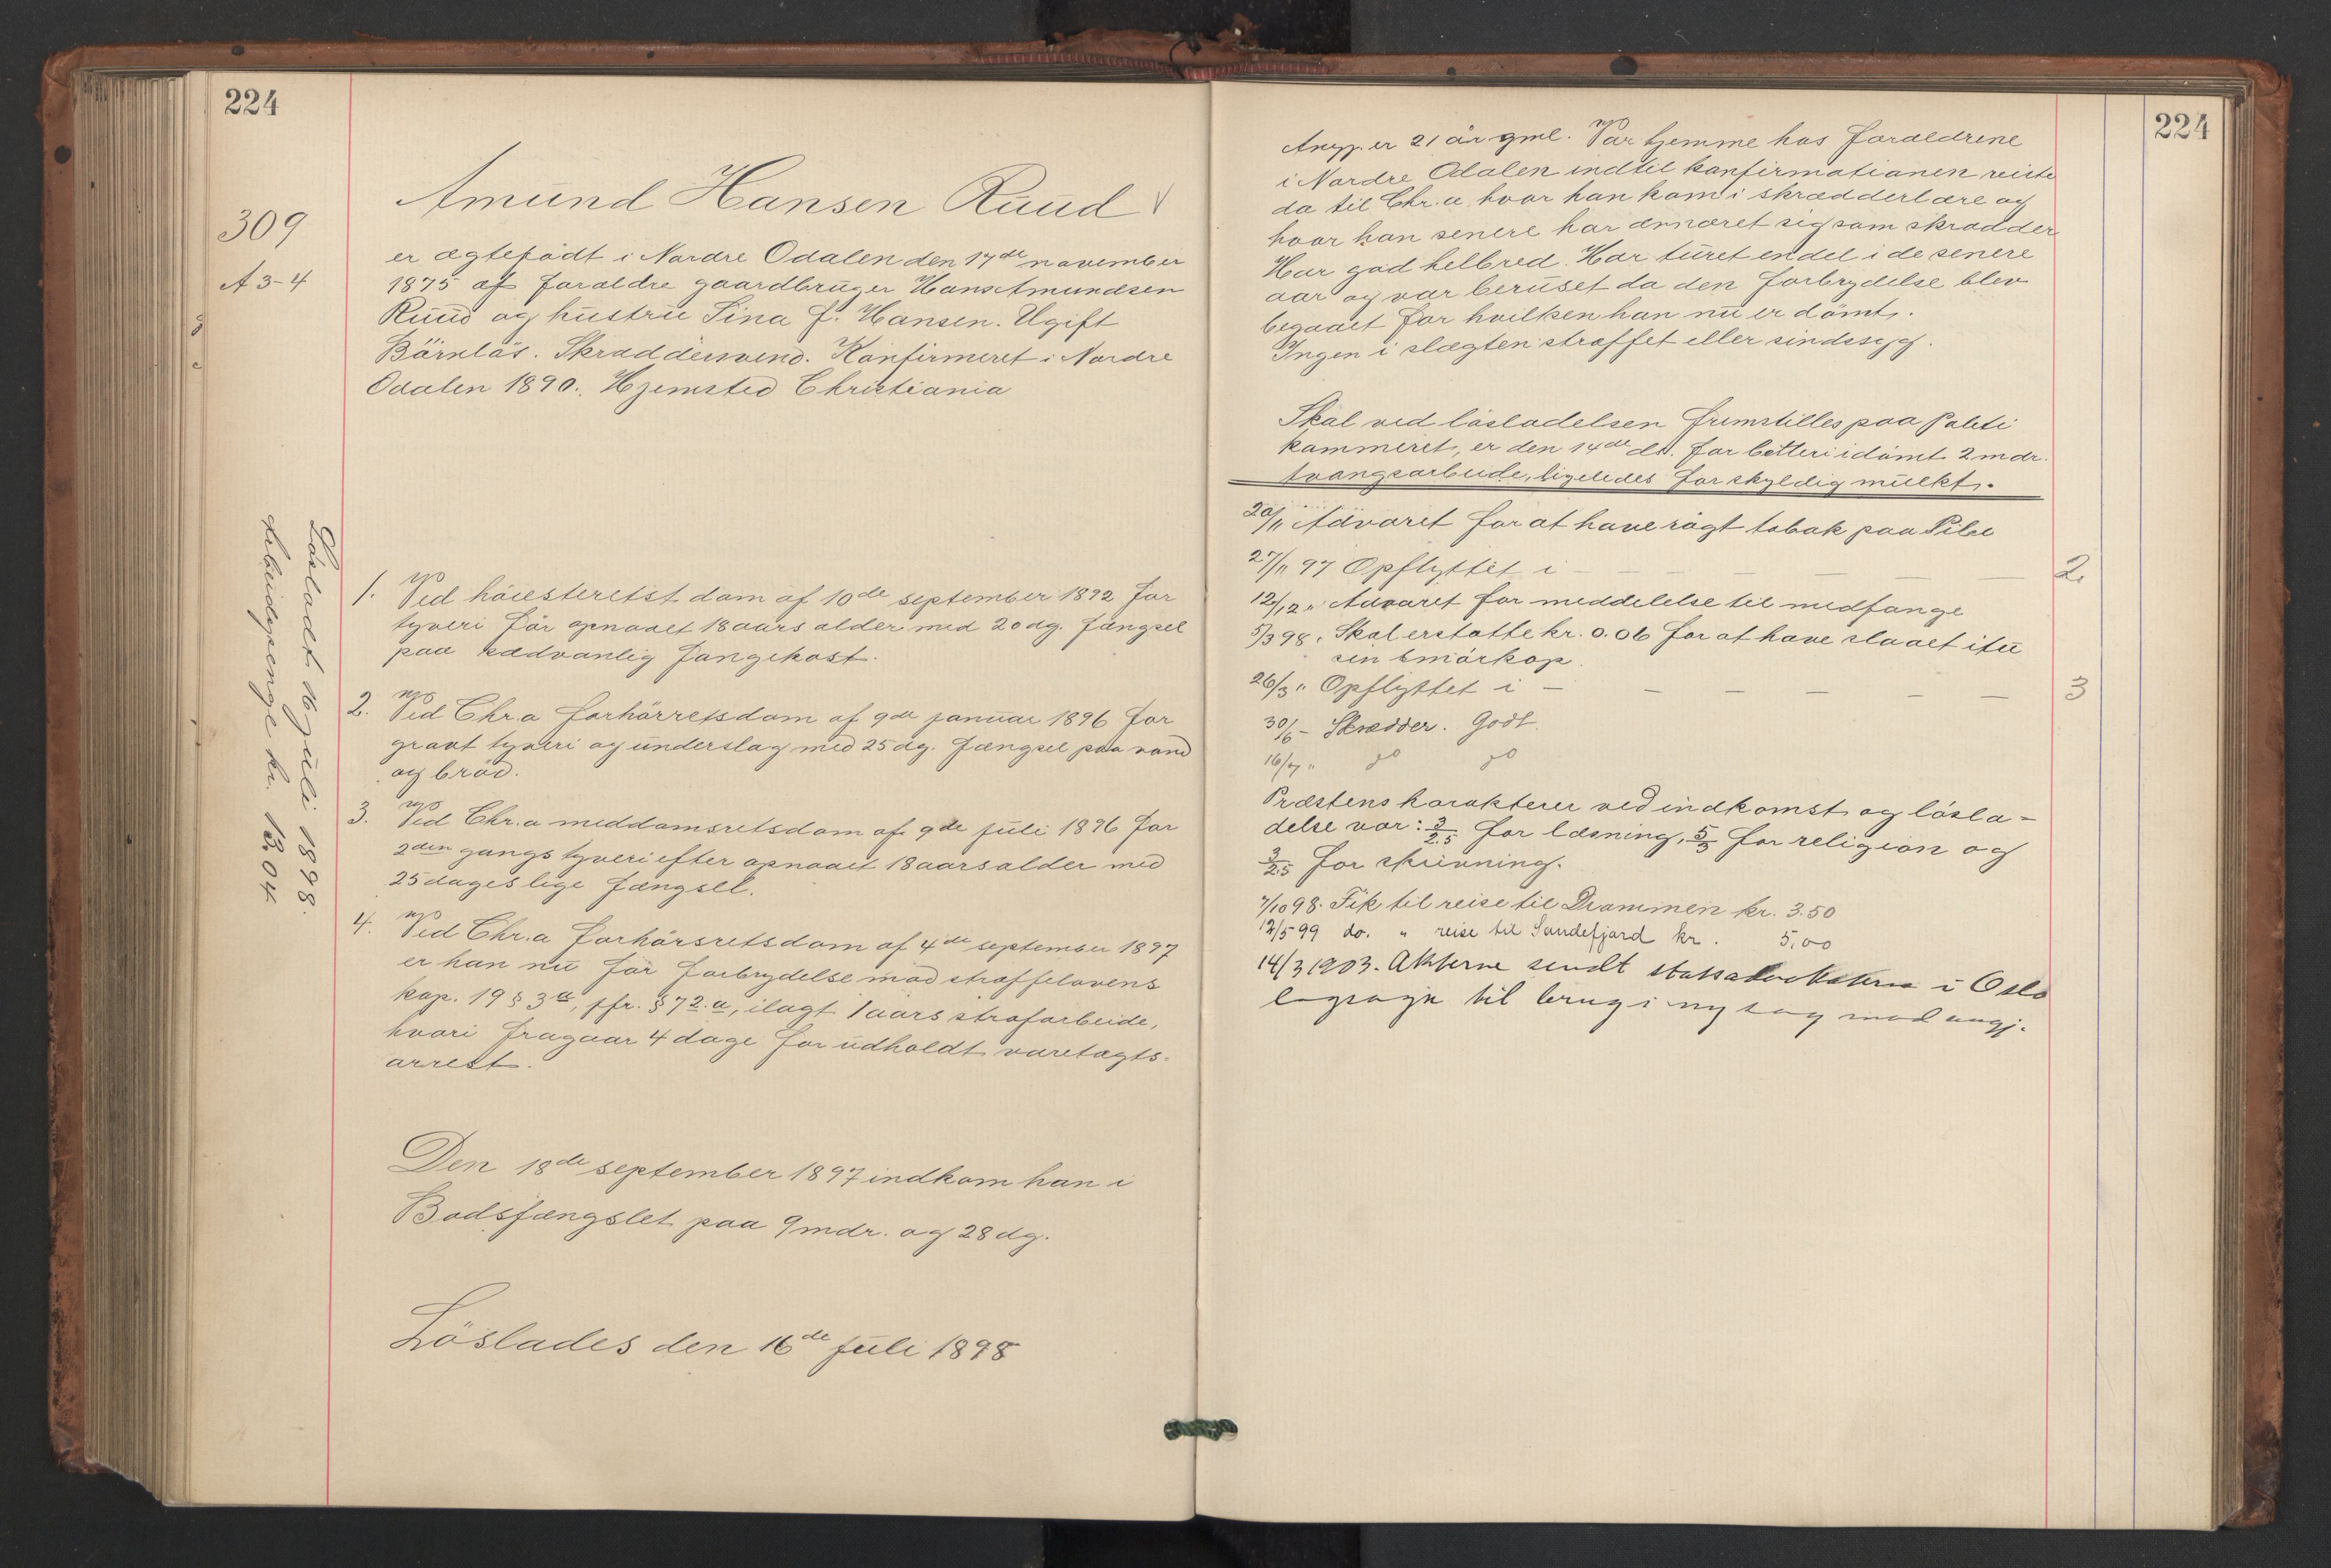 224
309
A 3-4
Amund Hansen Ruud
er ægtefødt i Nordre Odalen den 17de november
1875 af foraldre gaardbruger Hans Amundsen
Ruud og hustru Sina J. Hansen. Ugift
Børnløs. Skræddersvend. Konfirmeret i Nordre
Odalen 1890. Hjemsted Christiania
Løsladt 16 juli 1898.
Arbeidspenge kr. 13.04
1. Ved høiesteretst dom af 10de september 1892 for
tyveri før opnaaet 18 aars alder med 20 dg. fængsel
paa sædvanlig fangekost.
2. Ved Chr.a forhørretsdom af 9de januar 1896 for
gravt tyveri og underslag med 25 dg. fængsel paa vand
og brød.
3. Ved Chr.a meddomsretsdom af 9de juli 1896 for
2den gangs tyveri efter opnaaet 18 aars alder med
25 dages lige fængsel.
4. Ved Chr.a forhørsretsdom af 4de september 1897
er han nu for forbrydelse mod straffelovens
kap. 19 § 3 a, jfr. § 72.a, ilagt 1 aars strafarbeide,
hvori fragaar 4 dage for udholdt varetægts-
arrest.
Den 18de september 1897 indkom han i
Bodsfængslet paa 9 mdr. og 28 dg.
Löslades den 16de juli 1898
224
Angj. er 21 år gml. Var hjemme hos foraeldrene
i Nordre Odalen indtil konfirmationen reiste
da til Chr.a hvor han kom i skrædderlære og
hvor han senere har ernæret sig som skrædder
Har god helbred. Har turet endel i de senere
aar og var beruset da den forbrydelse blev
begaaet for hvilken han nu er dömt.
Ingen i slægten straffet eller sindssyg.
Skal ved løsladelsen fremstilles paa Politi
kammeret, er den 14de ds. for betleri idømt 2 mdr.
tvangsarbeide, ligeledes for skyldig mulkt.
20/11 Advaret for at have røgt tobak paa Pibe
27/11 97 Opflyttet i — — — — — 2
12/12 " Advaret for meddelelse til medfange
5/3 98. Skal erstatte kr. 0.06 for at have slaaet itu
sin smørkop.
26/3 " Opflyttet i — — — — — — 3
30/6 - Skrædder. Godt.
16/7 " do do
Præstens karakterer ved indkomst og løsla-
delse var: 3/2.5 for læsning, 5/3 for religion og
3/2.5 for skrivning.
7/10 98. Fik til reise til Drammen kr. 3.50
12/5 99 do. " reise til Sandefjord kr. 5,00
14/3 1903. Akterne sendt statsadvokaterne i Oslo
lagsogn til brug i ny sag mod angj.